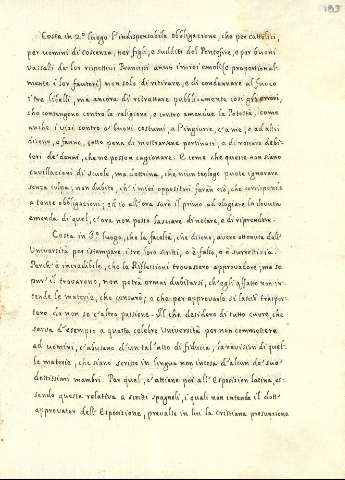 193
Costa in 2.º luogo l'indispensabile obbligazione, che per cattolici,
per uomini di coscenza, per figli, e sudditi del Pontefice, e per buoni
vassalli de' lor rispettivi Principi anno i miei emoli (e proporzional-
mente i lor fautori) non solo di ritirare, e di condannare al fuoco
i tre libelli, ma ancora di ritrattare pubblicamente così gli errori,
che contengono contro la religione, e contro amendue le Potestà, come
anche i vizi contro a' buoni costumi, e l'ingiurie, c'a me, e ad altri
dicono, e fanno, sotto pena di mostrarsene pertinaci, e di restare debi-
tori de' danni, che ne posson cagionare. E come che queste non siano
cavillazioni di scuole, ma dottrina, che niun teologo puote ignorare
senza colpa, non dubito, ch'i miei oppositori faran ciò, che corrisponde
a tante obbligazioni; ed io all'ora sarò il primo ad elogiare la dovuta
emenda di quel, c'ora non posso lasciare di notare, e di riprendere.
Costa in 3.º luogo, che la facoltà, che dicono, avere ottenuta dall'
Università per istampare i tre loro scritti, o è falsa, o è surrettizia.
Perch'è incredibile, che le Riflessioni trovassero approvadore; ma se
pur'il trovarono, non potrà ormai dubitarsi, ch'egli affatto non in-
tende le materie, che censurò; o che per approvarle si lasciò traspor-
tare da non so c'altra passione. Il che desidero di tutto cuore, che
serva d'esempio a questa celebre Università per non commettere
ad uomini, c'abusano d'un tal'atto di fiducia, la revision di quel-
le materie, che siano scritte in lingua non intesa d'alcun de' suoi
dottissimi membri. Per quel, c'attiene poi all'Esposizion latina, es-
sendo questa relativa a scritti spagnoli, i quali non intende il dott.
approvator dell'Esposizione, prevalse in lui la cristiana presunzione